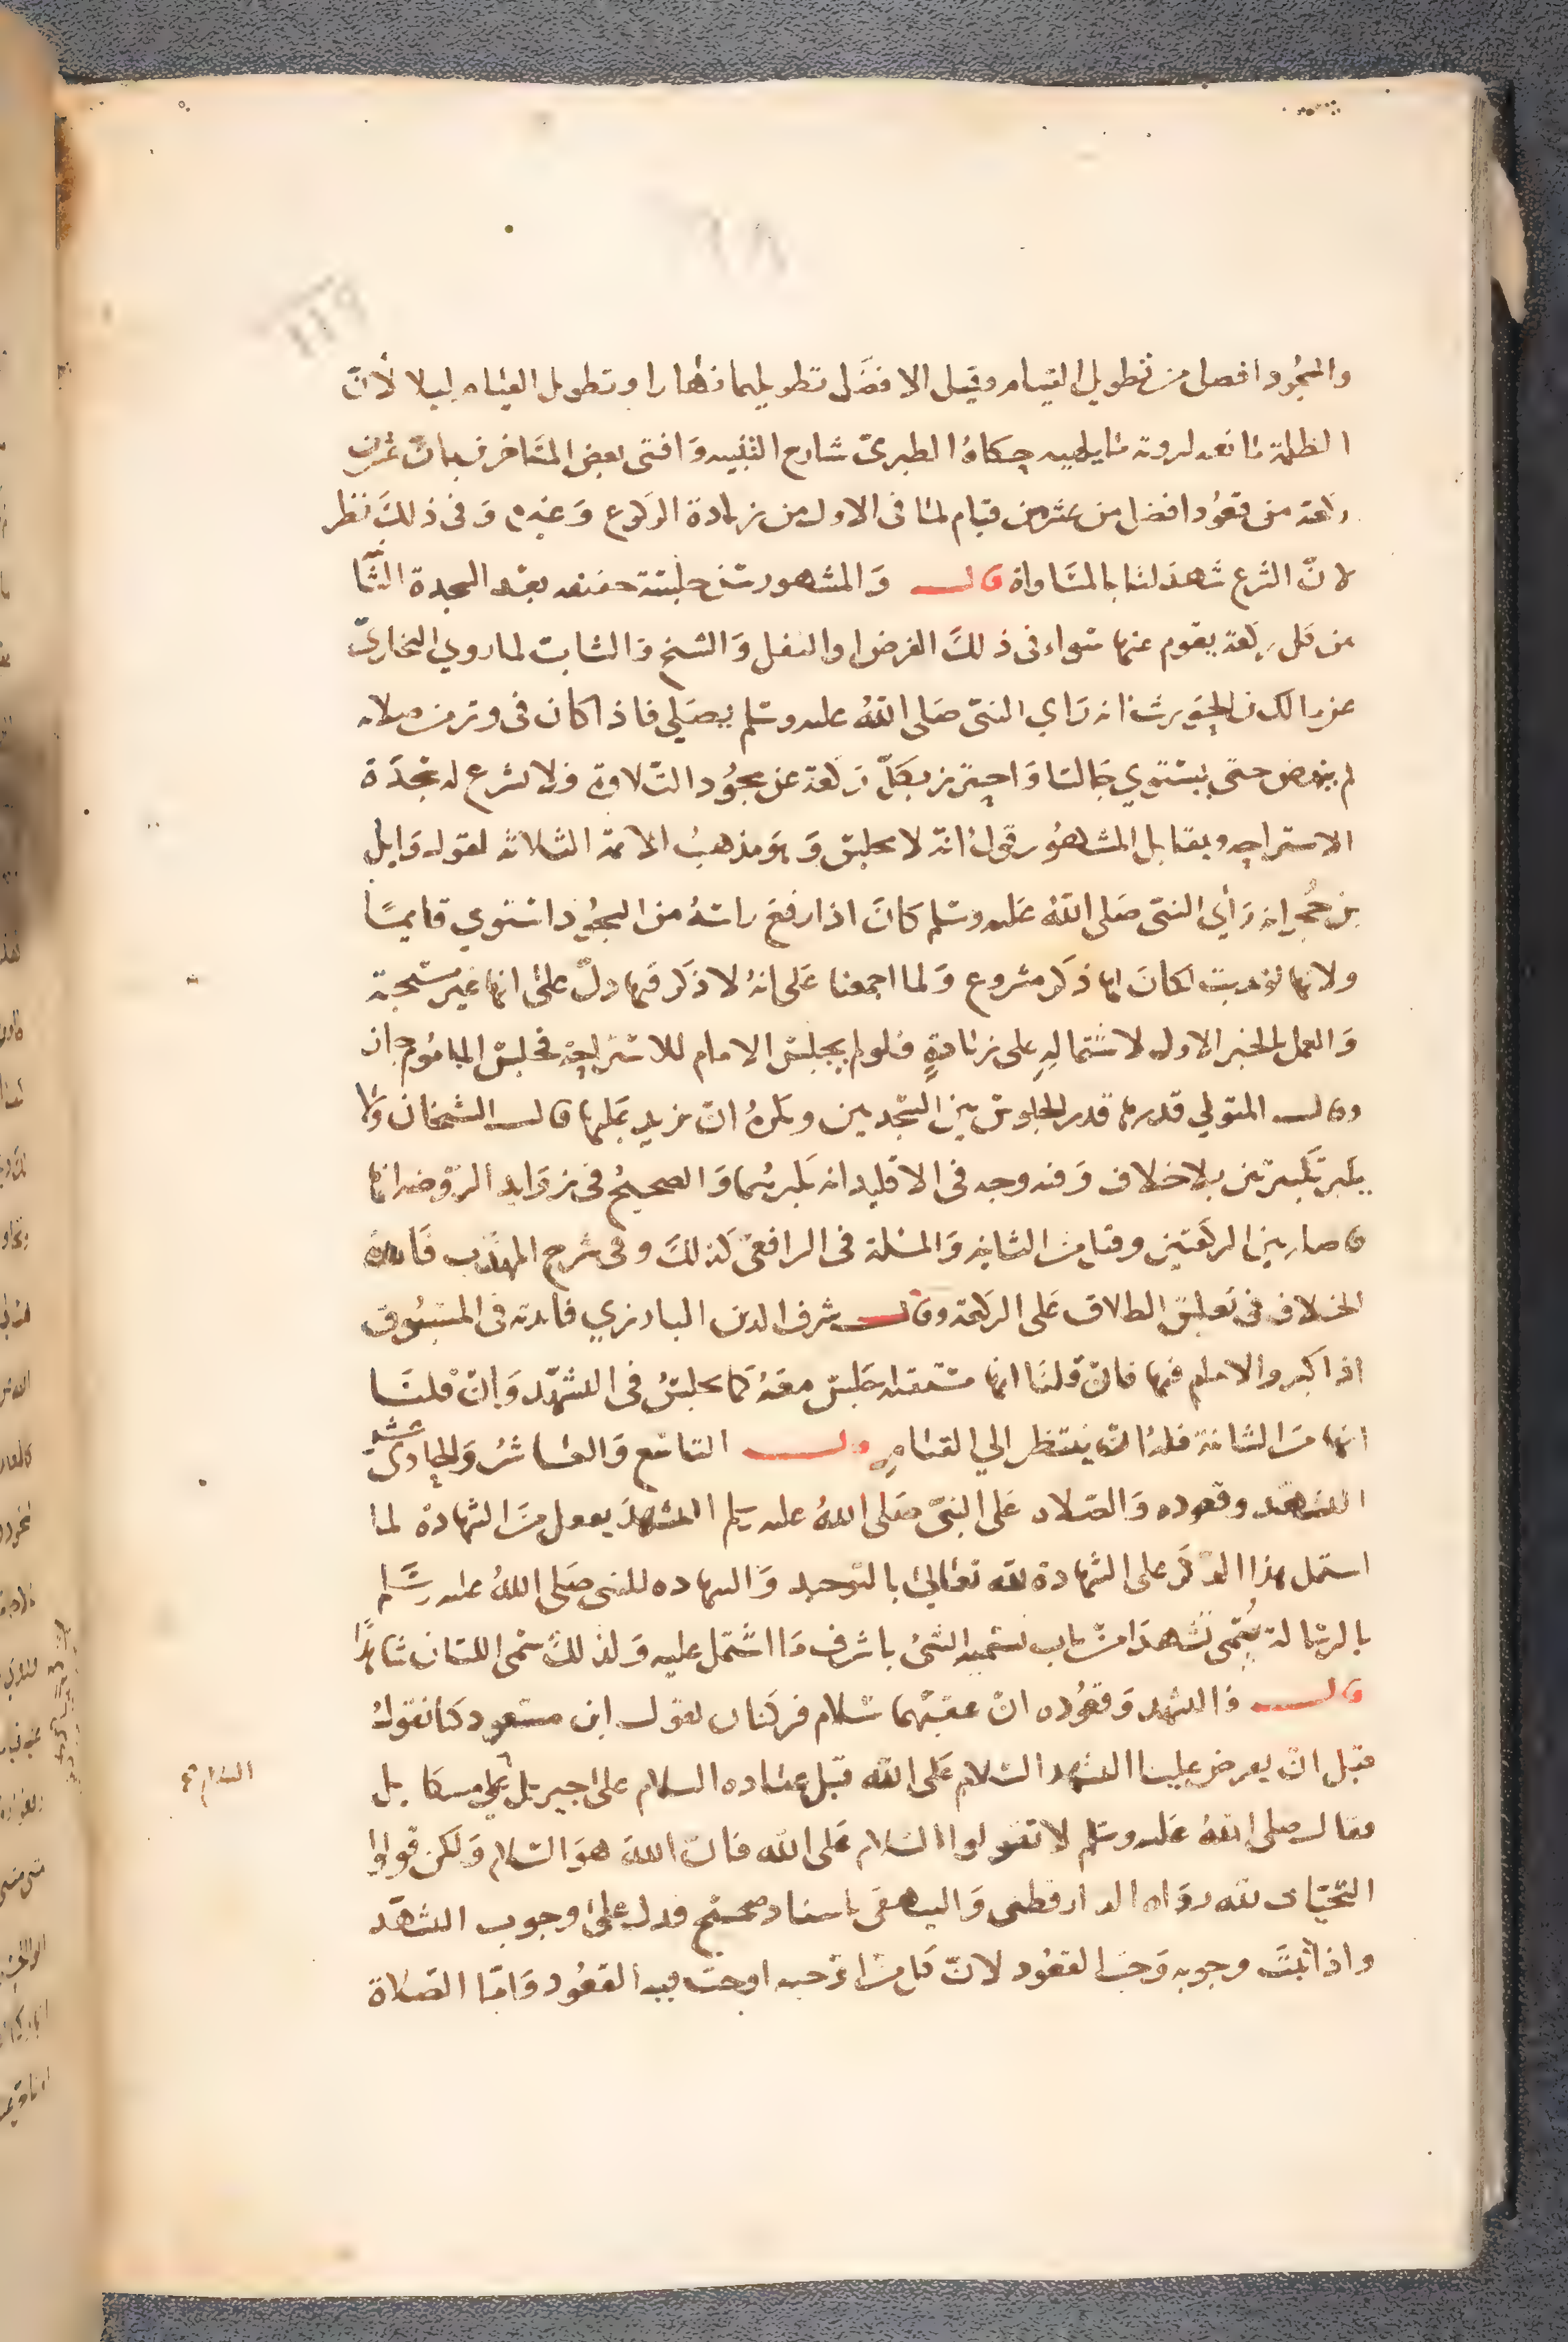 ١١٩
والسجود افضل من تطويل القيام وقيل الافضل تطويلهما نهارا وتطويل القيام ليلا لأنّ
الظلمة مانعه لروية ما يلهيه حكاهُ الطبري شارح التنبيه وَافتى بعض المتاخرين بانّ عشرين
ركعة من قعُود افضل من عشر من قيام لما فى الاول من زيادة الركوع وَغيره وَفى ذلكَ نظر
لانّ الشرع شهد لنا بالمسَاواة قال وَالمشهور سنّ جلسَة خفيفه بعد السجدة الثَّا
من كل ركعة يقوم عنها سَواء فى ذلكَ الفرض والنفل وَالشيخ وَالشاب لما روي البخاريّ
عن مالك بن الحويرث انه رَاي النبيّ صَلى اللهُ عليه وسَلم يصَلي فاذا كان فى وتر من صلاته
لم ينهض حتى يسْتوي جَالسَا وَاحتَرز بكلّ رَكعة عن سجُود التّلاوة فلا تشرع له سَجدَة
الاستراحه ويقابل المشهُور قَولُ انه لا يجلسُ وَهوَ مذهبُ الائمة الثلاثه لقوله وَايل
بن حُجر انه رَأي النبيّ صَلى اللهُ عَليه وسَلم كَانَ اذا رفعَ راسَهُ من السجُود استَوي قايمًا
ولانها لو ندبت لكانَ لها ذكر مشروع وَلما اجمعنا عَلى انهُ لا ذكَر فيها دلّ على انها غير مستحبة
وَالعمل بالخبر الاول لاشتمالِهِ على زيَادةٍ فلو لم يجلسْ الامام للاستراحة فجلسْ المامُوم جاز
وقال المتولي قدرها قدر الجلوسْ بين السَّجدتين ويكرهُ ان يزيد عَليها قال الشيخان وَلا
يكبر تكبيرتين بلا خلاف وَفيه وجه فى الاقليد انه يكبرهُما وَالصحيحُ فى زوَايد الروْضة انها
فاصله بين الركعَتين وقيل من الثانيه وَالمسئلة فى الرافعى كَذلكَ وفى شرح المهذب فَائدة
الخلاف فى تَعليق الطلاق عَلى الركعة وقال شرف الدين البارزي فايدته فى المسَبُوق
اذا كبر والامام فيها فانْ قلنَا انها مسْتَقله جَلسَ معَهُ كمَا يجلسُ فى التشهّد وَانْ قلنَا
انها منَ الثانية فلهُ ان ينتظر الي القيَام قال التاسَع وَالعَاشرُ وَالحادىَ عشَر
التشهّد وقعوده وَالصّلاه عَلى النبيّ صَلى اللهُ عليه وسلم التشهّد يفعل منَ الشهادة لما
اشتمل هذا الذكَر على الشهادة لله تعَالى بالتوحيد وَالشهاده للنبى صَلى اللهُ عليه وسَلم
بالرسَالة سُمّى تشَهدَا منْ باب تسمية الشئ باشرف مَا اشتمل عليه وَلذلكَ سُمى اللسَان شاهدًا
قال فالتشهد وَقعُوده انْ عقبهُما سَلام فركنان لقول ابن مسعود كَنا نقولُ
قبل ان يعرض علينا التشهد السَّلام عَلى الله قبل عباده السلام على جبريل على ميكائيل
السَّلام صح
فقال صلى اللهُ عَليه وسَلم لا تقولوا السَلام عَلى الله فان اللهَ هوَ السَّلام وَلكن قولوا
التحيَّات لله روَاه الدارقطنى وَالبيهقى باسنَاد صحيْح فدل على وجوب التشهّد
واذا ثبتَ وجوبه وَجبَ القعُود لانّ كل من اوْجبه اوجبَ فيه القعُود وَامّا الصّلاة